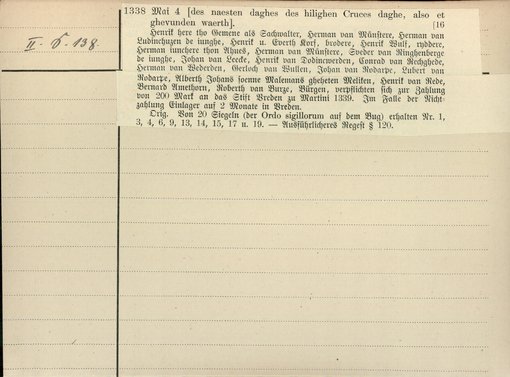 II. 6. 138.
1338 Mai 4 [des naesten daghes des hilighen Cruces daghe, also et
ghevunden waerth]. [16
Henrik here tho Gemene als Sachwalter, Herman van Münstere, Herman van
Ludinchuzen de iunghe, Henrik u. Everth Korf, brodere, Henrik Wulf, ryddere,
Herman iunchere thon Ahues, Herman van Münstere, Sveder van Ringhenberge
de iunghe, Johan van Leecke, Henrik van Dodincwerden, Conrad van Rechghede,
Herman van Wederden, Gerlach van Wullen, Johan van Rodarpe, Lubert van
Rodarpe, Alberth Johans soenne Malemans gheheten Melisen, Henrik van Rede,
Bernard Amethorn, Roberth van Burze, Bürgen, verpflichten sich zur Zahlung
von 200 Mark an das Stift Vreden zu Martini 1339. Im Falle der Nicht-
zahlung Einlager auf 2 Monate in Vreden.
Orig. Von 20 Siegeln (der Ordo sigillorum auf dem Bug) erhalten Nr. 1,
3, 4, 6, 9, 13, 14, 15, 17 u. 19. — Ausführlicheres Regest § 120.